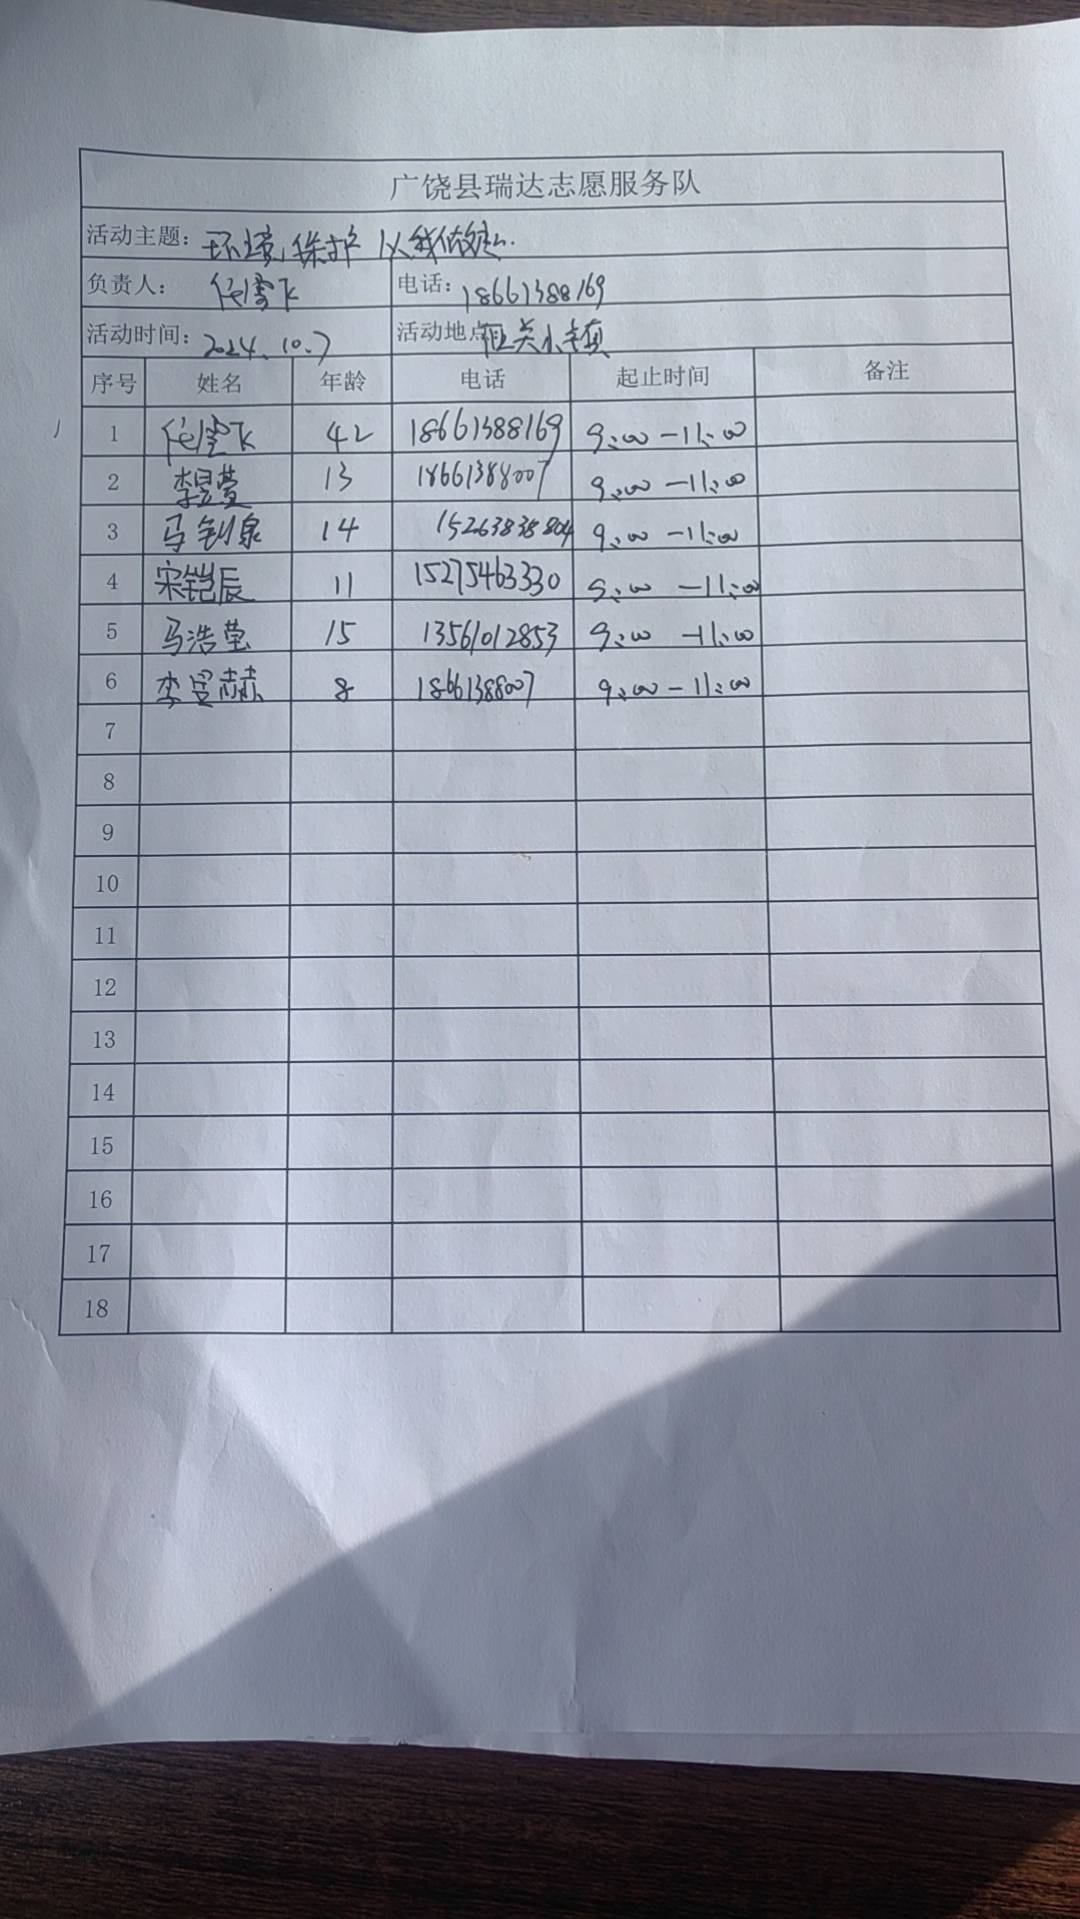 广饶县瑞达志愿服务队
活动主题：环境保护 从我做起.
负责人：任雪飞 电话：18661388169
活动时间：2024.10.7 活动地点 关小镇
序号 姓名 年龄 电话 起止时间 备注
1 任雪飞 42 18661388169 9:00-11:00
2 李昱萱 13 18661388007 9:00-11:00
3 马钊泉 14 15263838804 9:00-11:00
4 宋铠辰 11 15275463330 9:00-11:00
5 马浩莹 15 13561012853 9:00-11:00
6 李昱赫 8 18661388007 9:00-11:00
7
8
9
10
11
12
13
14
15
16
17
18